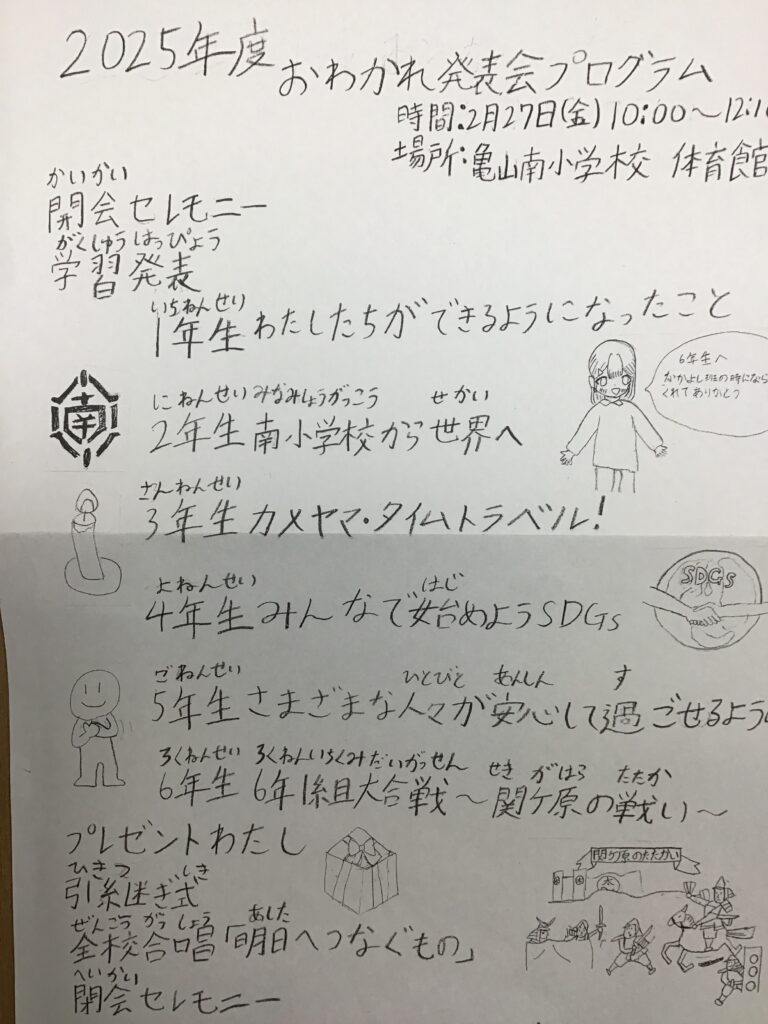 2025年度 おわかれ発表会プログラム
時間:2月27日(金)10:00〜12:1
場所:亀山南小学校 体育館
かいかい
開会セレモニー
がくしゅうはっぴょう
学習発表
いちねんせい
1年生わたしたちができるようになったこと
6年生へ
なかよし班の時になら
くれてありがとう
南
にねんせいみなみしょうがっこう せかい
2年生南小学校から世界へ
さんねんせい
3年生カメヤマ・タイムトラベル!
よねんせい はじ
4年生みんなで始めようSDGs
SDGs
ごねんせい ひとびと あんしん す
5年生さまざまな人々が安心して過ごせるように
ろくねんせい ろくねんいちくみだいがっせん せき がはら たたか
6年生 6年1組大合戦〜関ケ原の戦い〜
プレゼントわたし
ひきつ しき
引継ぎ式
関ケ原のたたかい
ぜんこうがっしょう あした
全校合唱「明日へつなぐもの」
へいかい
閉会セレモニー